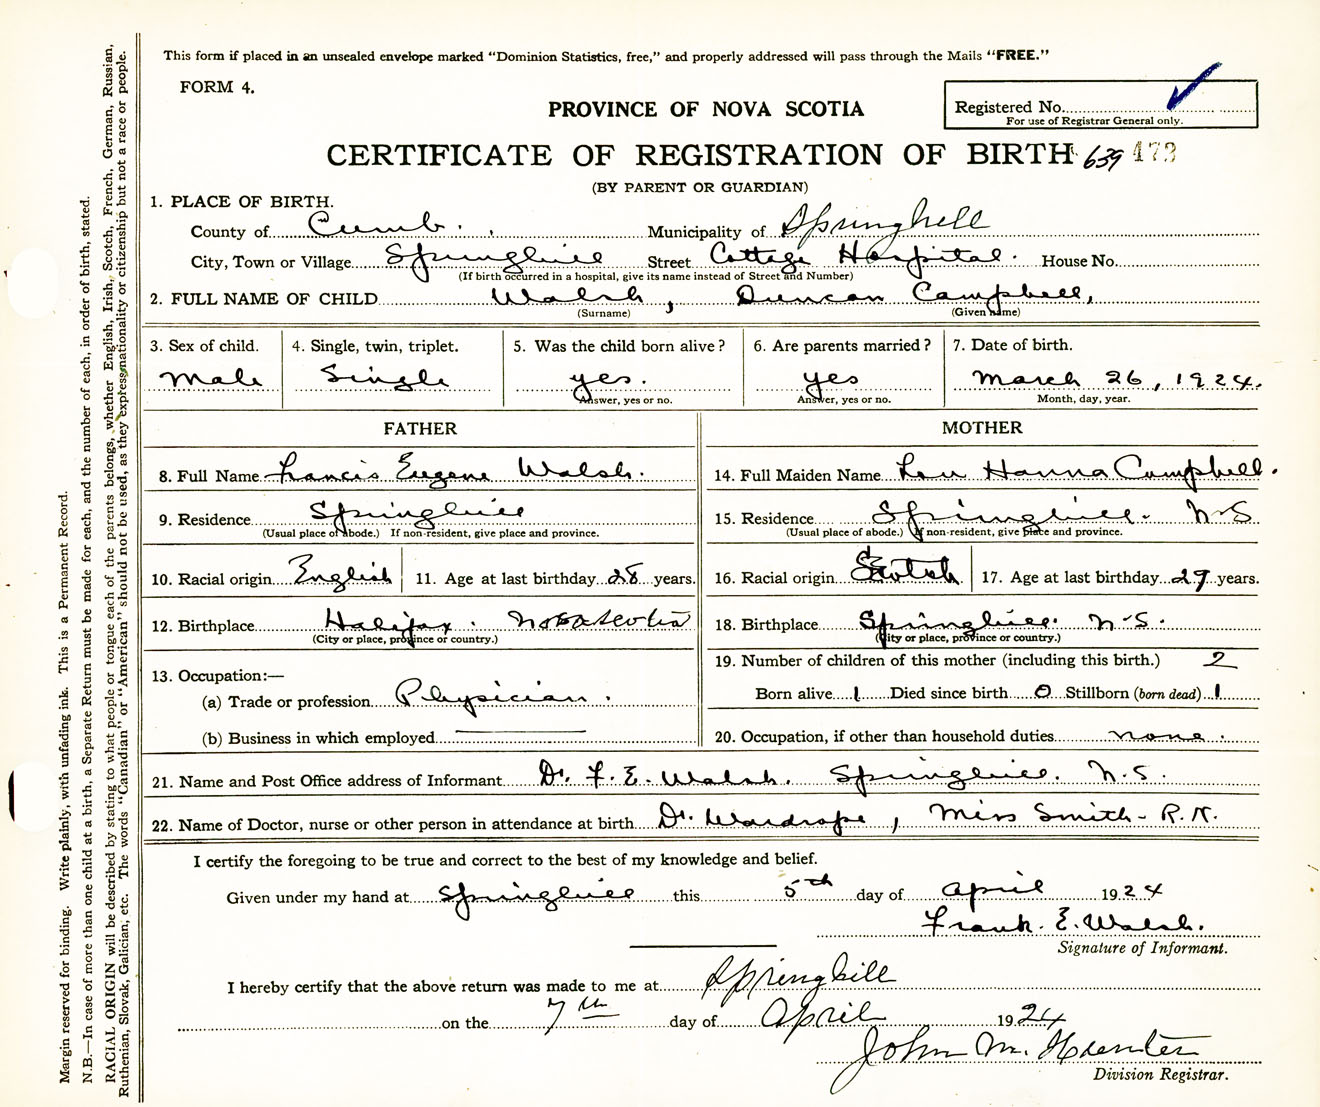 This form if placed in an unsealed envelope marked "Dominion Statistics, free," and properly addressed will pass through the Mails "FREE."
FORM 4.
Registered No.
For use of Registrar General only.
PROVINCE OF NOVA SCOTIA
CERTIFICATE OF REGISTRATION OF BIRTH 639 473
(BY PARENT OR GUARDIAN)
1. PLACE OF BIRTH.
County of Cumb. Municipality of Springhill
City, Town or Village Springhill Street Cottage Hospital. House No.
(If birth occurred in a hospital, give its name instead of Street and Number)
2. FULL NAME OF CHILD Walsh, Duncan Campbell,
(Surname) (Given name)
3. Sex of child. 4. Single, twin, triplet. 5. Was the child born alive? 6. Are parents married? 7. Date of birth.
Male Single yes. yes March 26, 1924.
Answer, yes or no. Answer, yes or no. Month, day, year.
FATHER MOTHER
8. Full Name Francis Eugene Walsh. 14. Full Maiden Name Hanna Campbell.
9. Residence Springhill 15. Residence Springhill. N-S
(Usual place of abode.) If non-resident, give place and province. (Usual place of abode.) If non-resident, give place and province.
10. Racial origin English 11. Age at last birthday 28 years. 16. Racial origin Scotch 17. Age at last birthday 29 years.
12. Birthplace Halifax. Nova Scotia 18. Birthplace Springhill. N-S.
(City or place, province or country.) (City or place, province or country.)
13. Occupation:— 19. Number of children of this mother (including this birth.) 2
(a) Trade or profession Physician. Born alive 1 Died since birth 0 Stillborn (born dead) 1
(b) Business in which employed 20. Occupation, if other than household duties none.
21. Name and Post Office address of Informant Dr. F. E. Walsh. Springhill. N.S.
22. Name of Doctor, nurse or other person in attendance at birth Dr. Wardrope, Miss Smith - R.N.
I certify the foregoing to be true and correct to the best of my knowledge and belief.
Given under my hand at Springhill this 5th day of April 1924
Frank. E. Walsh.
Signature of Informant.
I hereby certify that the above return was made to me at Springhill
on the 7th day of April 1924
John M. Hunter
Division Registrar.
Margin reserved for binding. Write plainly, with unfading ink. This is a Permanent Record.
N.B.—In case of more than one child at a birth, a Separate Return must be made for each, and the number of each, in order of birth, stated.
RACIAL ORIGIN will be described by stating to what people or tongue each of the parents belongs, whether English, Irish, Scotch, French, German, Russian,
Ruthenian, Slovak, Galician, etc. The words "Canadian" or "American" should not be used, as they express nationality or citizenship but not a race or people.